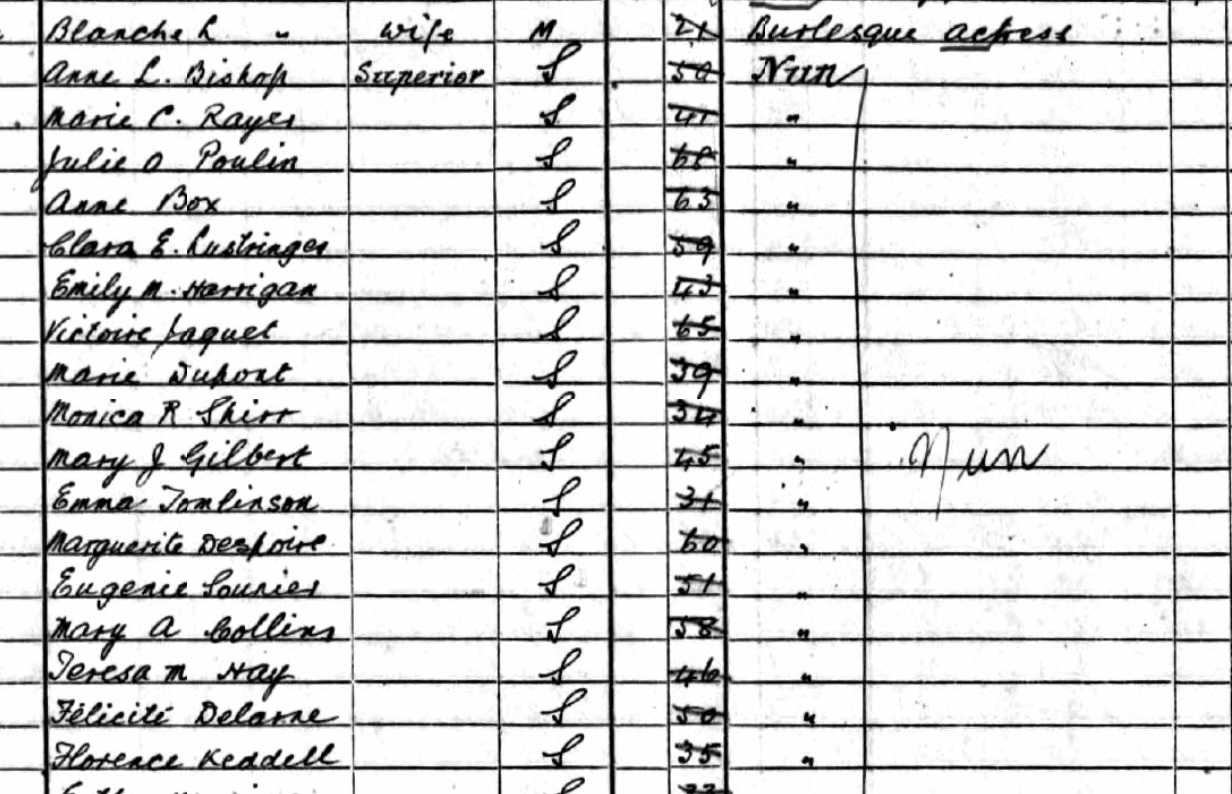 Blanche L " Wife M 21 Burlesque actress
Anne L. Bishop Superior S 50 Nun
Marie C. Rayer S 41 "
Julie O Poulin S 68 "
Anne Box S 63 "
Clara E. Lustringer S 59 "
Emily M. Harrigan S 43 "
Victoire Jaquet S 65 "
Marie Dupont S 39 "
Monica R Shirr S 34 "
Mary J Gilbert S 45 " Nun
Emma Tomlinson S 31 "
Marguerite Despoire S 60 "
Eugenie Sounier S 51 "
Mary A Collins S 58 "
Teresa M Hay S 46 "
Félicité Delarne S 50 "
Florence Keddell S 35 "